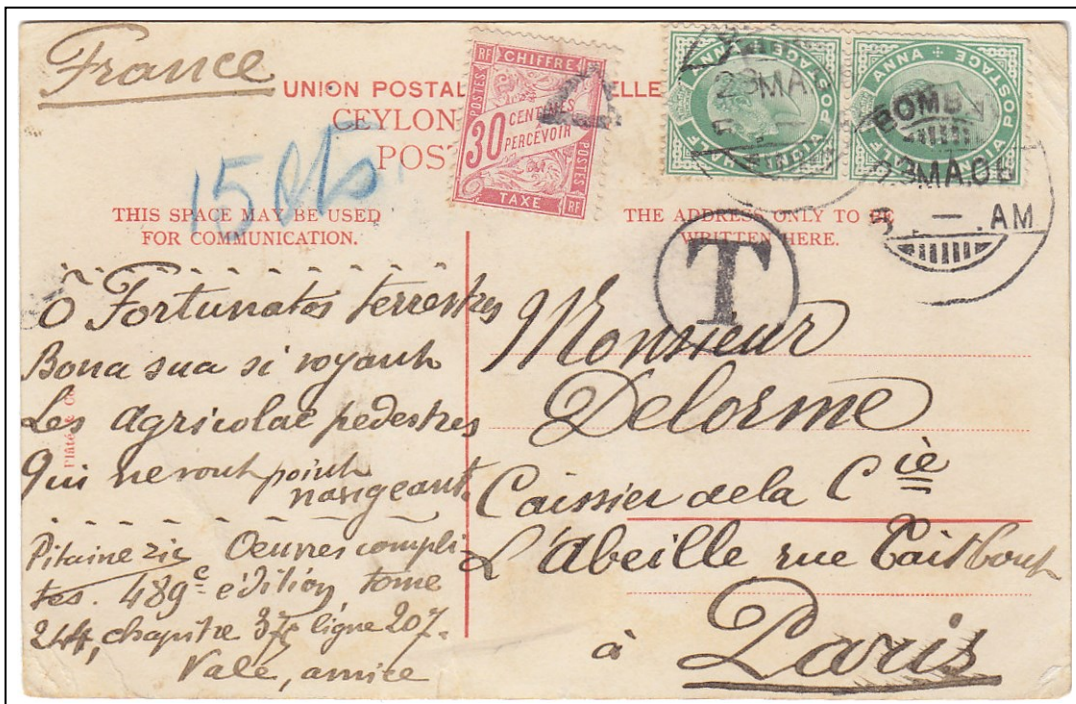 France
UNION POSTAL ELLE
CEYLON
POST
15 cts
RF CHIFFRE
POSTES
30 CENTIMES
PERCEVOIR
POSTES
TAXE RF
INDIA POSTAGE
HALF ANNA
INDIA POSTAGE
HALF ANNA
23MA
BOMB
23MA.06
5 — AM
THIS SPACE MAY BE USED
FOR COMMUNICATION.
THE ADDRESS ONLY TO BE
WRITTEN HERE.
T
Ô Fortunatos terrestres
Bona sua si voyant
Les agricolae pedestres
Qui ne vont point
navigeant.
Pitaine zic Oeuvres compli-
tes. 489e édition tome
244, chapitre 375 ligne 207.
Vale, amice
Plâté & Co
Monsieur
Delorme
Caissier de la Cie
L'Abeille rue Taitbout
à Paris